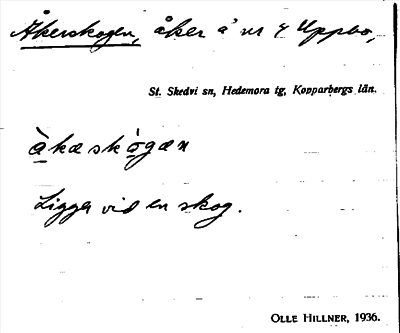 Åkerskogen, åker å nr 4 Uppbo,
St. Skedvi sn, Hedemora tg, Kopparbergs län.
àkæskògæn
Ligger vid en skog.
OLLE HILLNER, 1936.